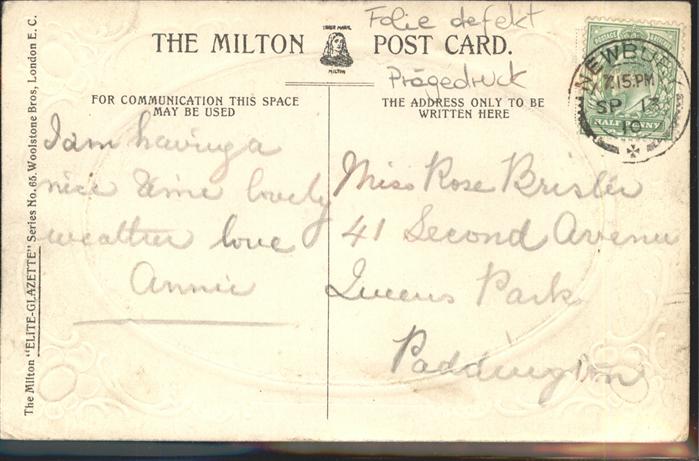 Folie defekt
THE MILTON POST CARD.
TRADE MARK
MILTON
Prägedruck
FOR COMMUNICATION THIS SPACE
MAY BE USED
THE ADDRESS ONLY TO BE
WRITTEN HERE
NEWBURY
7.15.PM
SP 13
10
HALF PENNY
I am having a
nice time lovely
weather love
Annie
Miss Rose Brisler
41 Second Avenue
Queens Park
Paddington
The Milton "ELITE-GLAZETTE" Series No. 65. Woolstone Bros, London E. C.